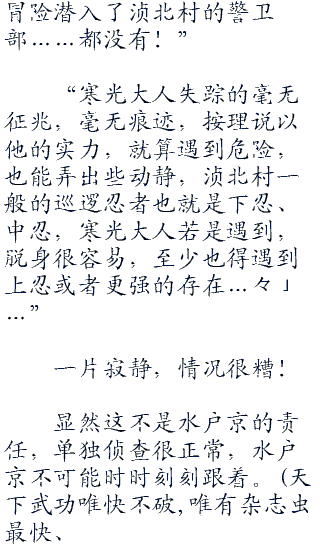 冒险潜入了浈北村的警卫
部……都没有！”
“寒光大人失踪的毫无
征兆，毫无痕迹，按理说以
他的实力，就算遇到危险，
也能弄出些动静，浈北村一
般的巡逻忍者也就是下忍、
中忍，寒光大人若是遇到，
脱身很容易，至少也得遇到
上忍或者更强的存在…々」
…”
一片寂静，情况很糟！
显然这不是水户京的责
任，单独侦查很正常，水户
京不可能时时刻刻跟着。(天
下武功唯快不破,唯有杂志虫
最快、